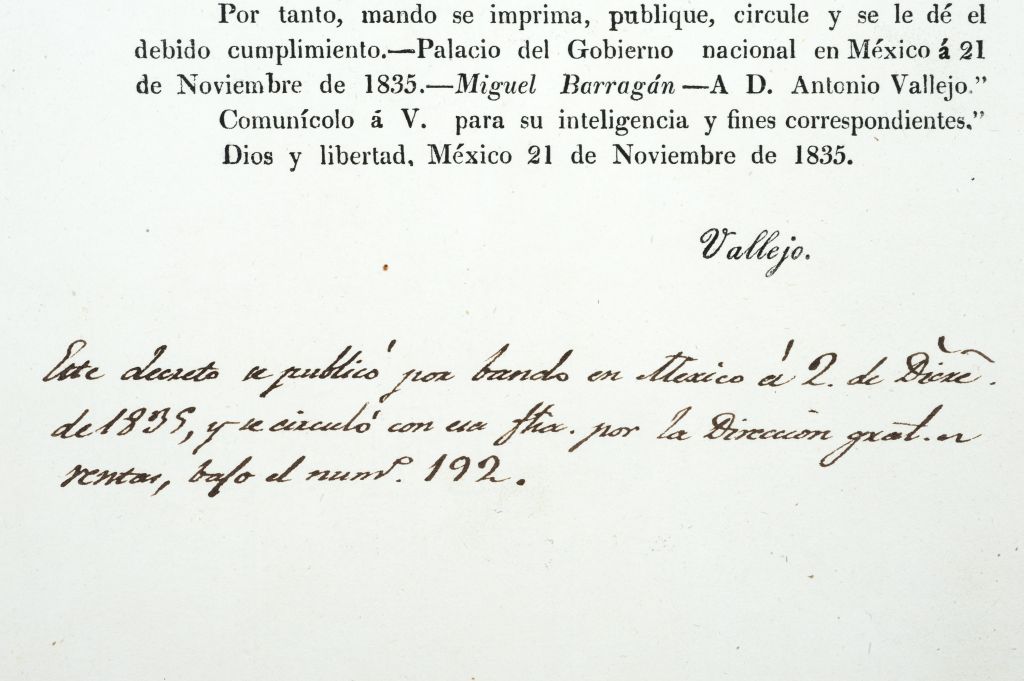 Por tanto, mando se imprima, publique, circule y se le dé el
debido cumplimiento.—Palacio del Gobierno nacional en México á 21
de Noviembre de 1835.—Miguel Barragán—A D. Antonio Vallejo."
Comunícolo á V. para su inteligencia y fines correspondientes."
Dios y libertad, México 21 de Noviembre de 1835.
Vallejo.
Este decreto se publicó por bando en Mexico á 2. de Dicre.
de 1835, y se circuló con esa fha. por la Direccion gral. de
rentas, bajo el numo. 192.